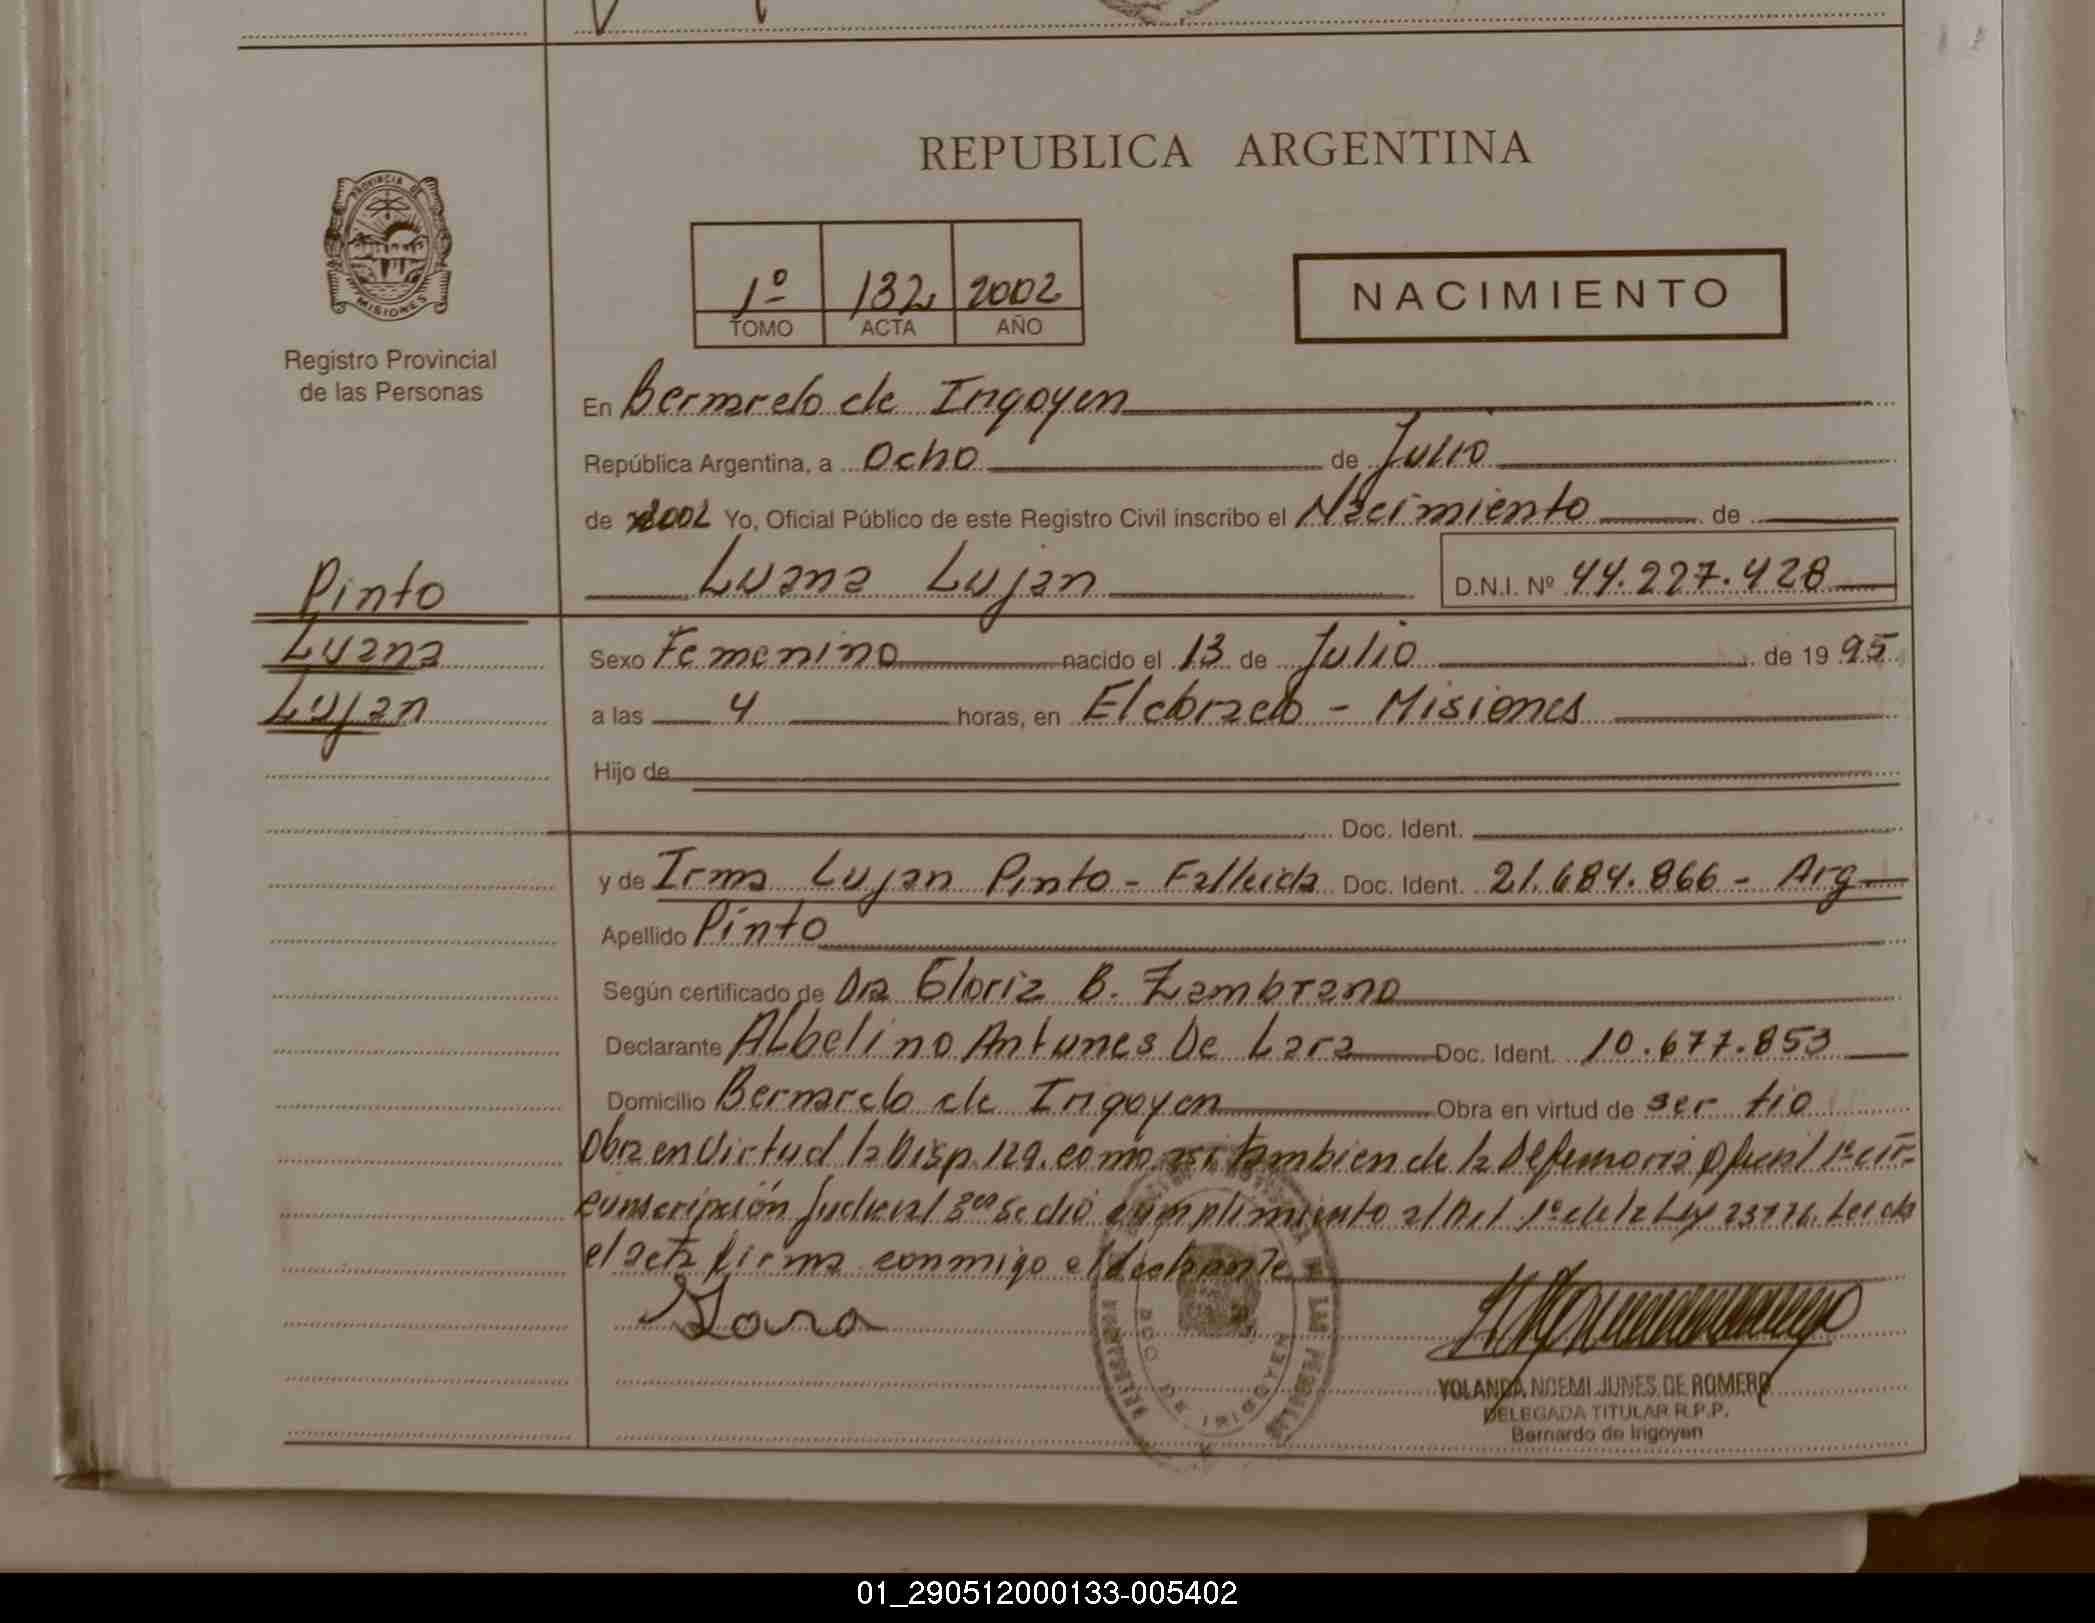 REPUBLICA ARGENTINA
PROVINCIA DE
MISIONES
Registro Provincial
de las Personas
1º 132 2002
TOMO ACTA AÑO
NACIMIENTO
En Bernardo de Irigoyen
República Argentina, a Ocho de Julio
de 2002 Yo, Oficial Público de este Registro Civil inscribo el Nacimiento de
Luana Lujan D.N.I. Nº 44.227.428
Pinto
Luana
Lujan
Sexo Femenino nacido el 13 de Julio de 1995
a las 4 horas, en Eldorado - Misiones
Hijo de
Doc. Ident.
y de Irma Lujan Pinto - Fallecida Doc. Ident. 21.684.866 - Arg
Apellido Pinto
Según certificado de Dra Gloria B. Zambrano
Declarante Albelino Antunes De Lara Doc. Ident. 10.677.853
Domicilio Bernardo de Irigoyen Obra en virtud de ser tio
Obra en Virtud la Disp. 129. como asi tambien de la Defensoria Oficial 1º cir-
cunscripción Judicial se dió cumplimiento al Art 1º de la Ley Leida
el acta firma conmigo el declarante
Lara
BDO. DE IRIGOYEN
YOLANDA NOEMI JUNES DE ROMERO
DELEGADA TITULAR R.P.P.
Bernardo de Irigoyen
01_290512000133-005402